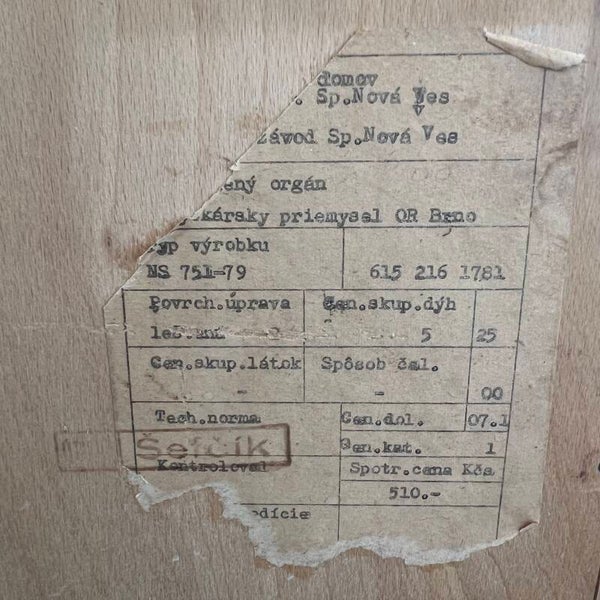 domov
. Sp.Nová Ves
závod Sp.Nová Ves
ený orgán
kársky priemysel OR Brno
typ výrobku
NS 751-79 615 216 1781
Povrch.úprava Cen.skup.dýh
5 25
Cen.skup.látok Spôsob čal.
- - 00
Tech.norma Cen.dol. 07.1
Šefčík Cen.kat. 1
Kontroloval Spotr.cena Kčs
510.-
edície